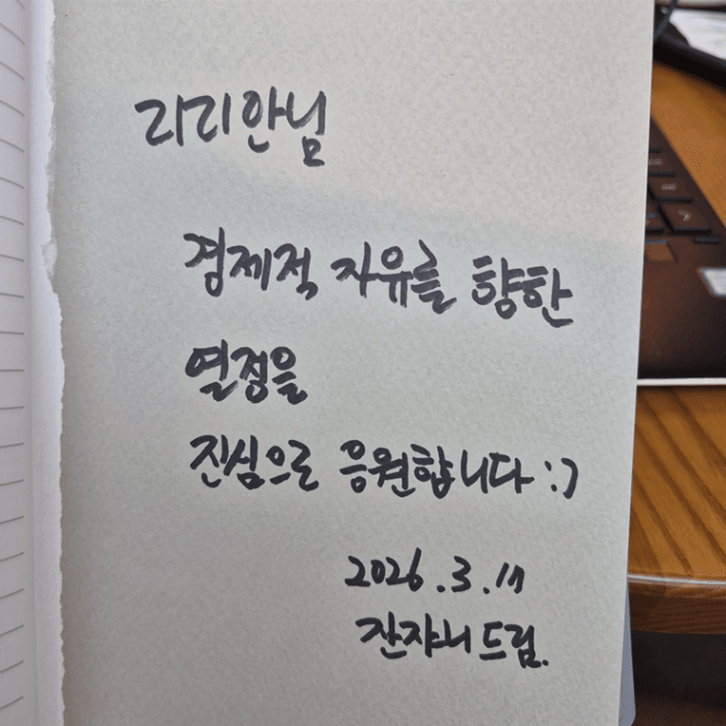 리리안님
경제적 자유를 향한
열정을
진심으로 응원합니다 :)
2026.3.17
잔쟈니 드림.